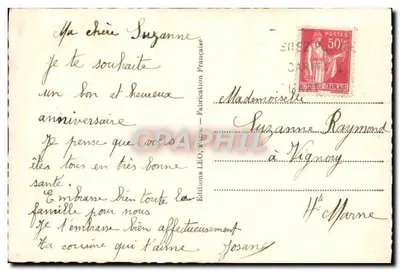 Ma chère Suzanne
Je te souhaite
un bon et heureux
anniversaire
Je pense que vous
êtes tous en très bonne
santé.
Embrasse bien toute la
famille pour nous
Je t'embrasse bien affectueusement
Ta cousine qui t'aime Josane
Editions LEO, - Fabrication Française
POSTES
50c
Mademoiselle
Suzanne Raymond
à Vignory
Hte Marne
CPAPHIL